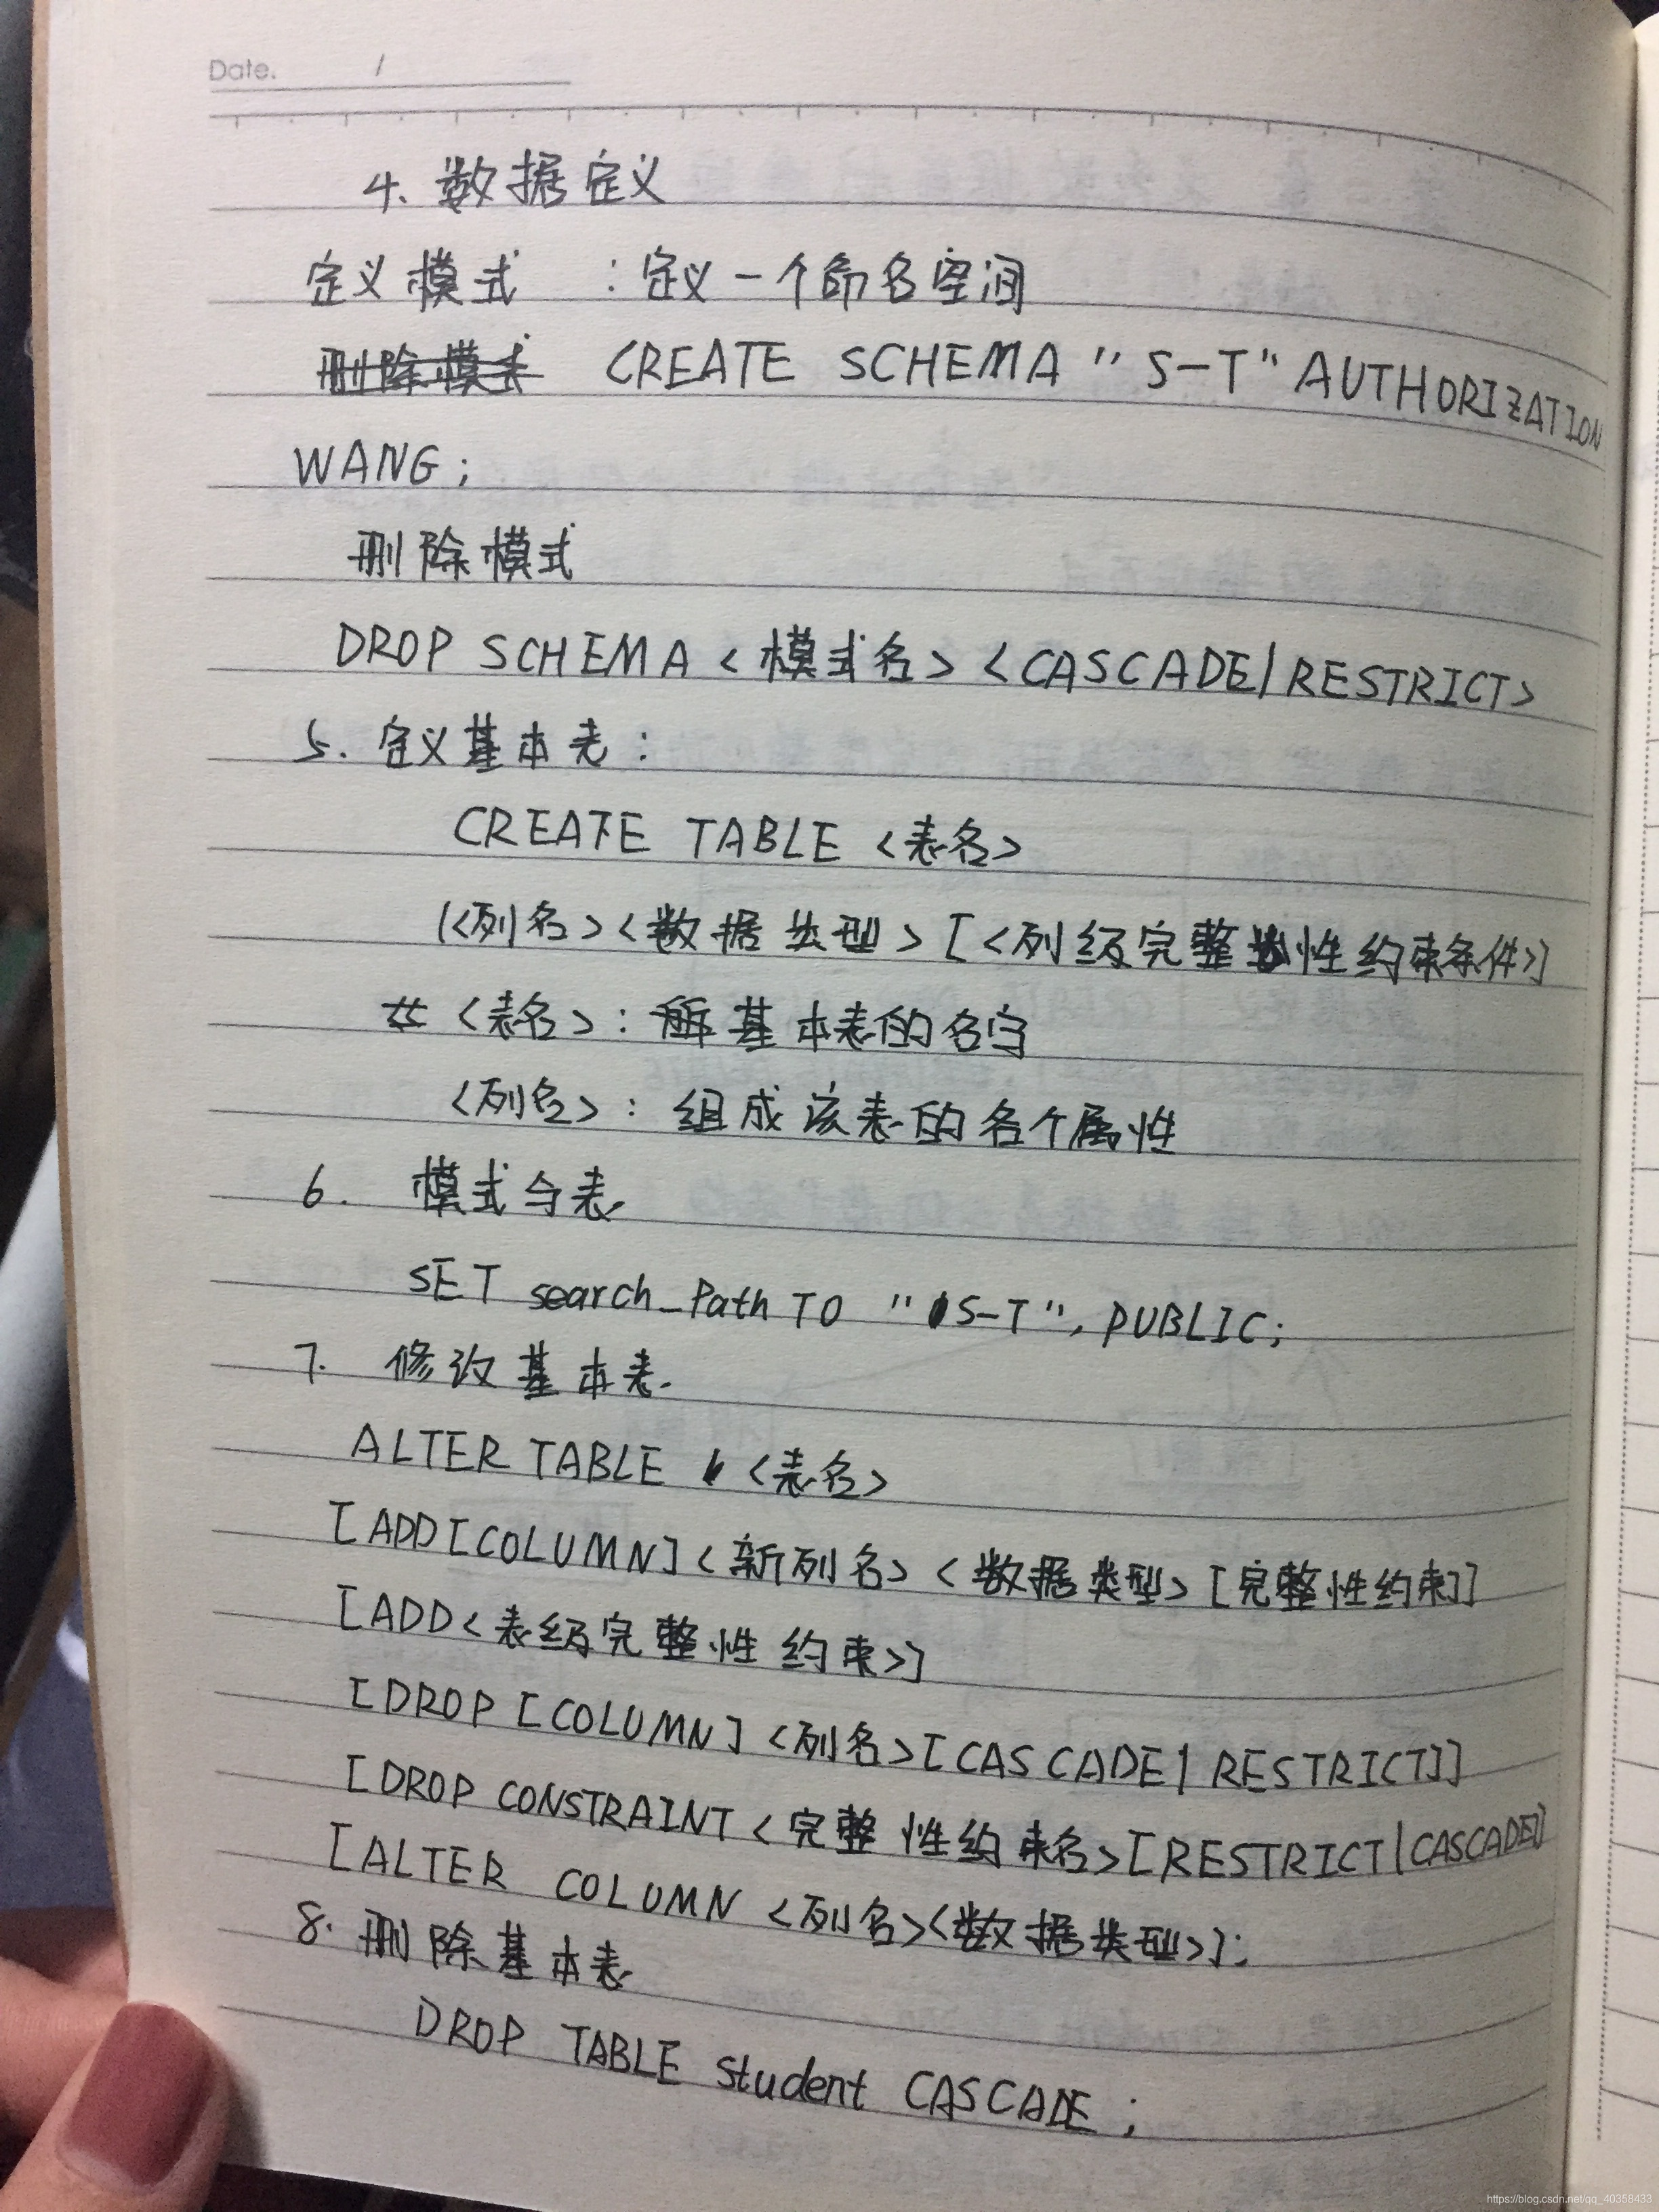 Date. /
4. 数据定义
定义模式 : 定义一个命名空间
删除模式 CREATE SCHEMA "S-T" AUTHORIZATION
WANG;
删除模式
DROP SCHEMA <模式名> <CASCADE|RESTRICT>
5. 定义基本表:
CREATE TABLE <表名>
(<列名><数据类型>[<列级完整性约束条件>]
<表名>: 所基本表的名字
<列名>: 组成该表的各个属性
6. 模式与表
SET search_Path TO "S-T", PUBLIC;
7. 修改基本表.
ALTER TABLE <表名>
[ADD[COLUMN]<新列名><数据类型>[完整性约束]]
[ADD<表级完整性约束>]
[DROP[COLUMN]<列名>[CASCADE|RESTRICT]]
[DROP CONSTRAINT<完整性约束名>[RESTRICT|CASCADE]]
[ALTER COLUMN <列名><数据类型>];
8. 删除基本表
DROP TABLE Student CASCADE;
https://blog.csdn.net/qq_40358433